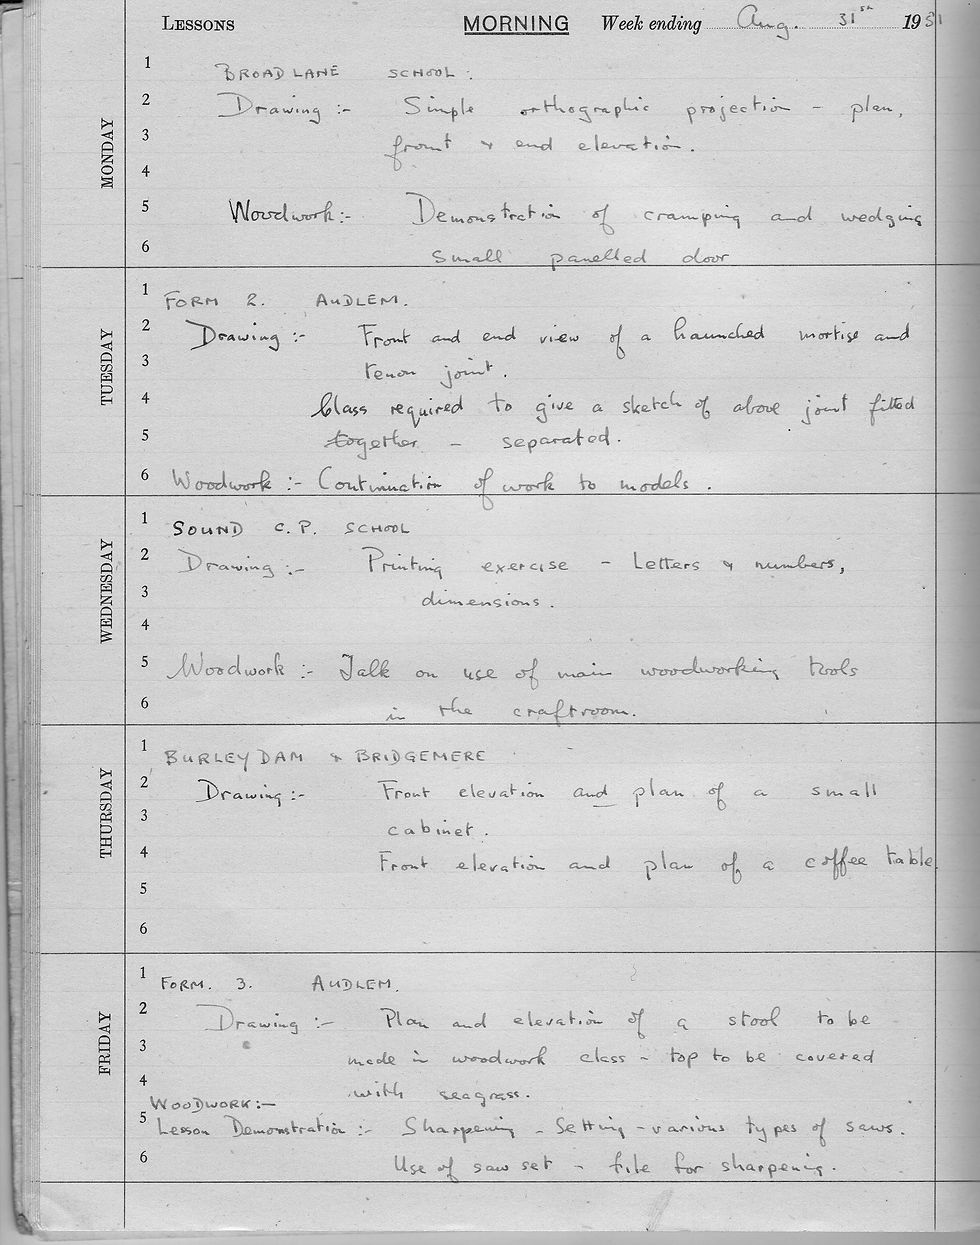 LESSONS MORNING Week ending Aug. 31st 1951
MONDAY
1 BROAD LANE SCHOOL :
2 Drawing :- Simple orthographic projection - plan,
3 front & end elevation.
4
5 Woodwork:- Demonstration of cramping and wedging
6 small panelled door
TUESDAY
1 FORM 2. AUDLEM.
2 Drawing :- Front and end view of a haunched mortise and
3 tenon joint.
4 Class required to give a sketch of above joint fitted
5 together - separated.
6 Woodwork :- Continuation of work to models .
WEDNESDAY
1 SOUND C.P. SCHOOL
2 Drawing :- Printing exercise - Letters & numbers,
3 dimensions.
4
5 Woodwork :- Talk on use of main woodworking tools
6 in the craftroom.
THURSDAY
1 BURLEYDAM & BRIDGEMERE
2 Drawing :- Front elevation and plan of a small
3 cabinet.
4 Front elevation and plan of a coffee table.
5
6
FRIDAY
1 FORM. 3. AUDLEM.
2 Drawing :- Plan and elevation of a stool to be
3 made in woodwork class - top to be covered
4 with seagrass.
WOODWORK:-
5 Lesson Demonstration :- Sharpening - Setting - various types of saws.
6 Use of saw set - file for sharpening.